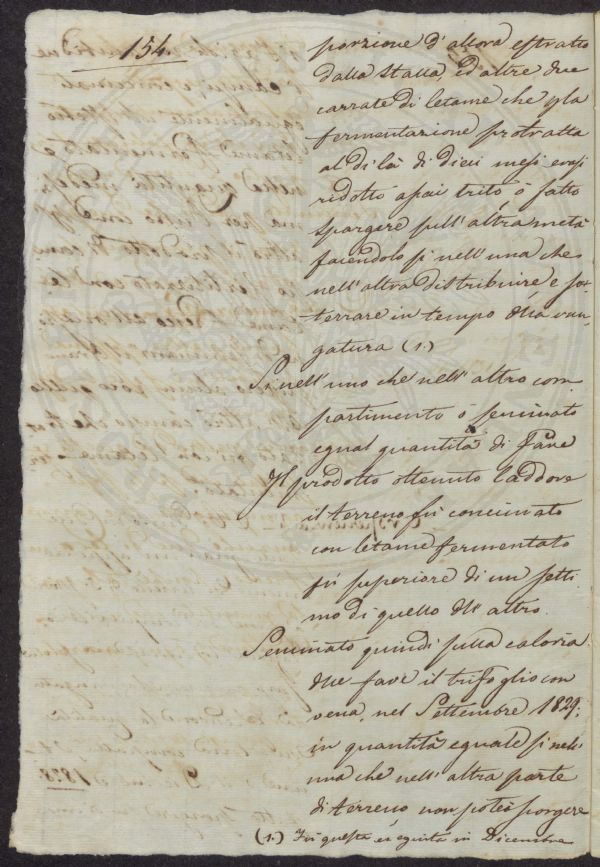 154
porzione d'allora estratto
dalla Stalla, ed altre due
carrate di letame che p la
fermentazione protratta
al di là di dieci mesi erasi
ridotto assai trito, ò fatto
spargere sull'altra metà
facendolo sì nell'una che
nell'altra distribuire e sot
terrare in tempo della van
gatura (1.)
Sì nell'uno che nell'altro com
partimento ò seminato
egual quantità di Fave
Il prodotto ottenuto laddove
il terreno fù concimato
con letame fermentato
fù superiore di un setti
mo di quello dell'altro.
Seminato quindi sulla caloria
delle fave il trifoglio con
vena, nel Settembre 1829;
in quantità eguale sì nell'
una che nell'altra parte
di terreno non potei scorgere
(1.) Fù questa eseguita in Dicembre